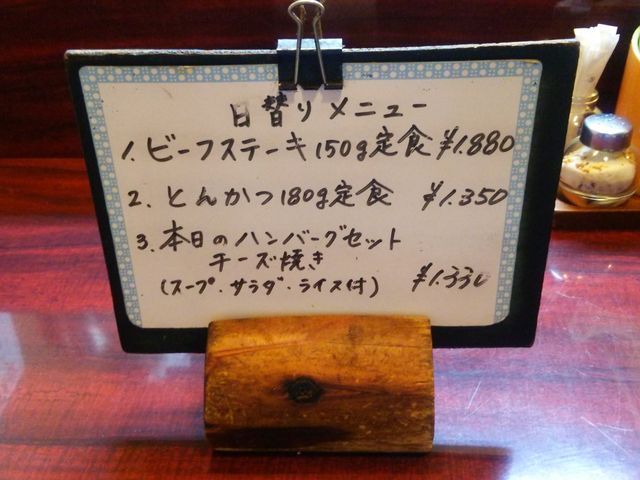 日替りメニュー
1. ビーフステーキ150g定食 ¥1.880
2. とんかつ180g定食 ¥1.350
3. 本日のハンバーグセット
チーズ焼き
(スープ・サラダ・ライス付) ¥1.330